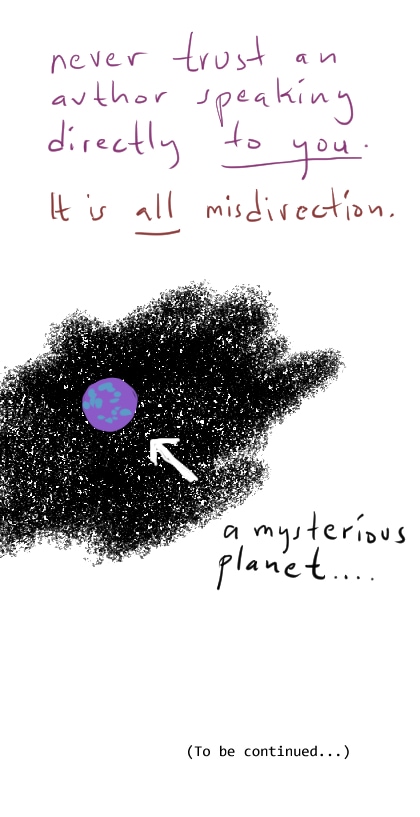 never trust an
author speaking
directly to you.
It is all misdirection.
a mysterious
planet....
(To be continued...)